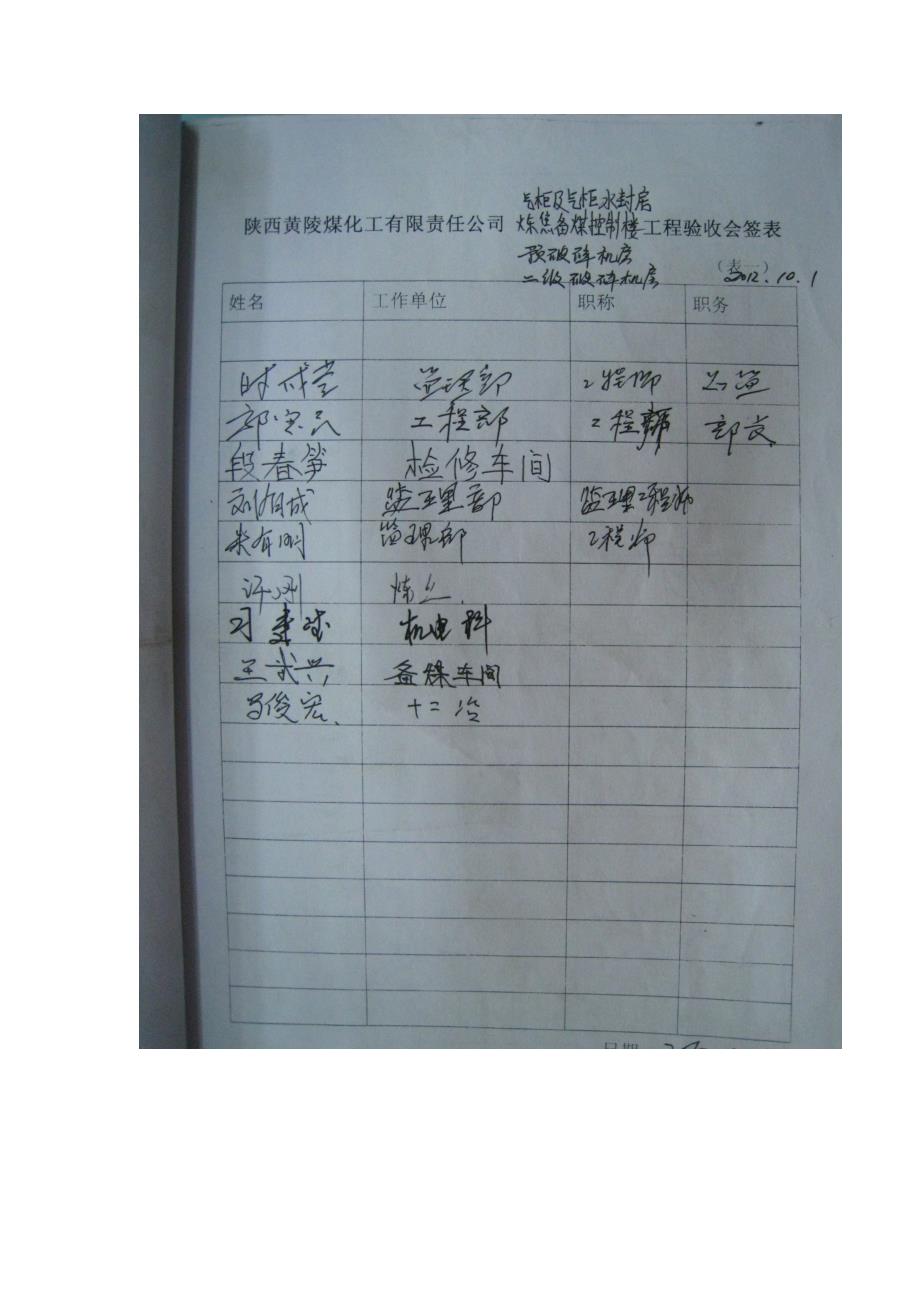 气柜及气柜水封房
陕西黄陵煤化工有限责任公司 炼焦备煤控制楼 工程验收会签表
预破碎机房 （表一）
二级破碎机房 2012.10.1
姓名 工作单位 职称 职务
监理部 工程师 总监
工程部 工程师 部长
段春笋 检修车间
监理部 监理工程师
朱有明 监理部 工程师
许刚
机电科
王武兴 备煤车间
马俊宏 十二冶
日期